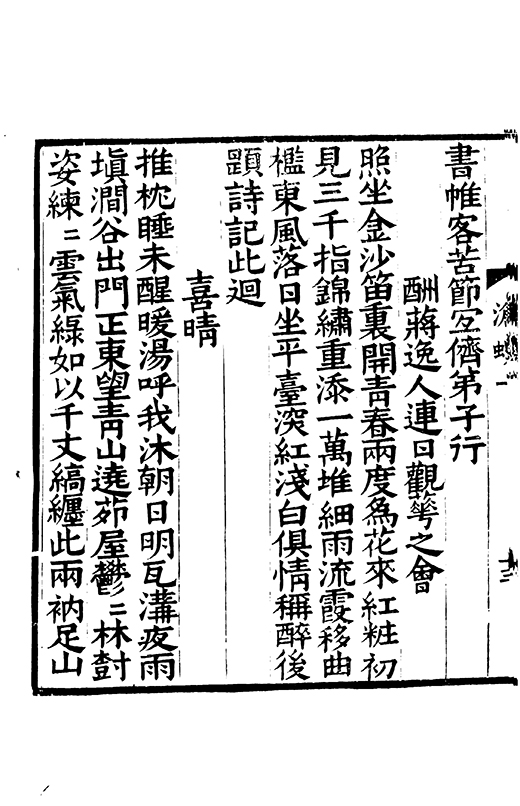 書帷客苦節㝉儕弟子行
酬蔣逸人連日觀蕚之會
照坐金沙笛裏開青春兩度爲花來紅粧初
見三千指錦繡重添一萬堆細雨流霞移曲
檻東風落日坐平臺深紅淺白俱情稱醉後
題詩記此迴
喜晴
推枕睡未醒暖湯呼我沐朝日明瓦溝夜雨
塡澗谷出門正東望靑山遶茆屋鬱〻林對
姿練〻雲氣綠如以千丈縞纒此兩衲足山
十三